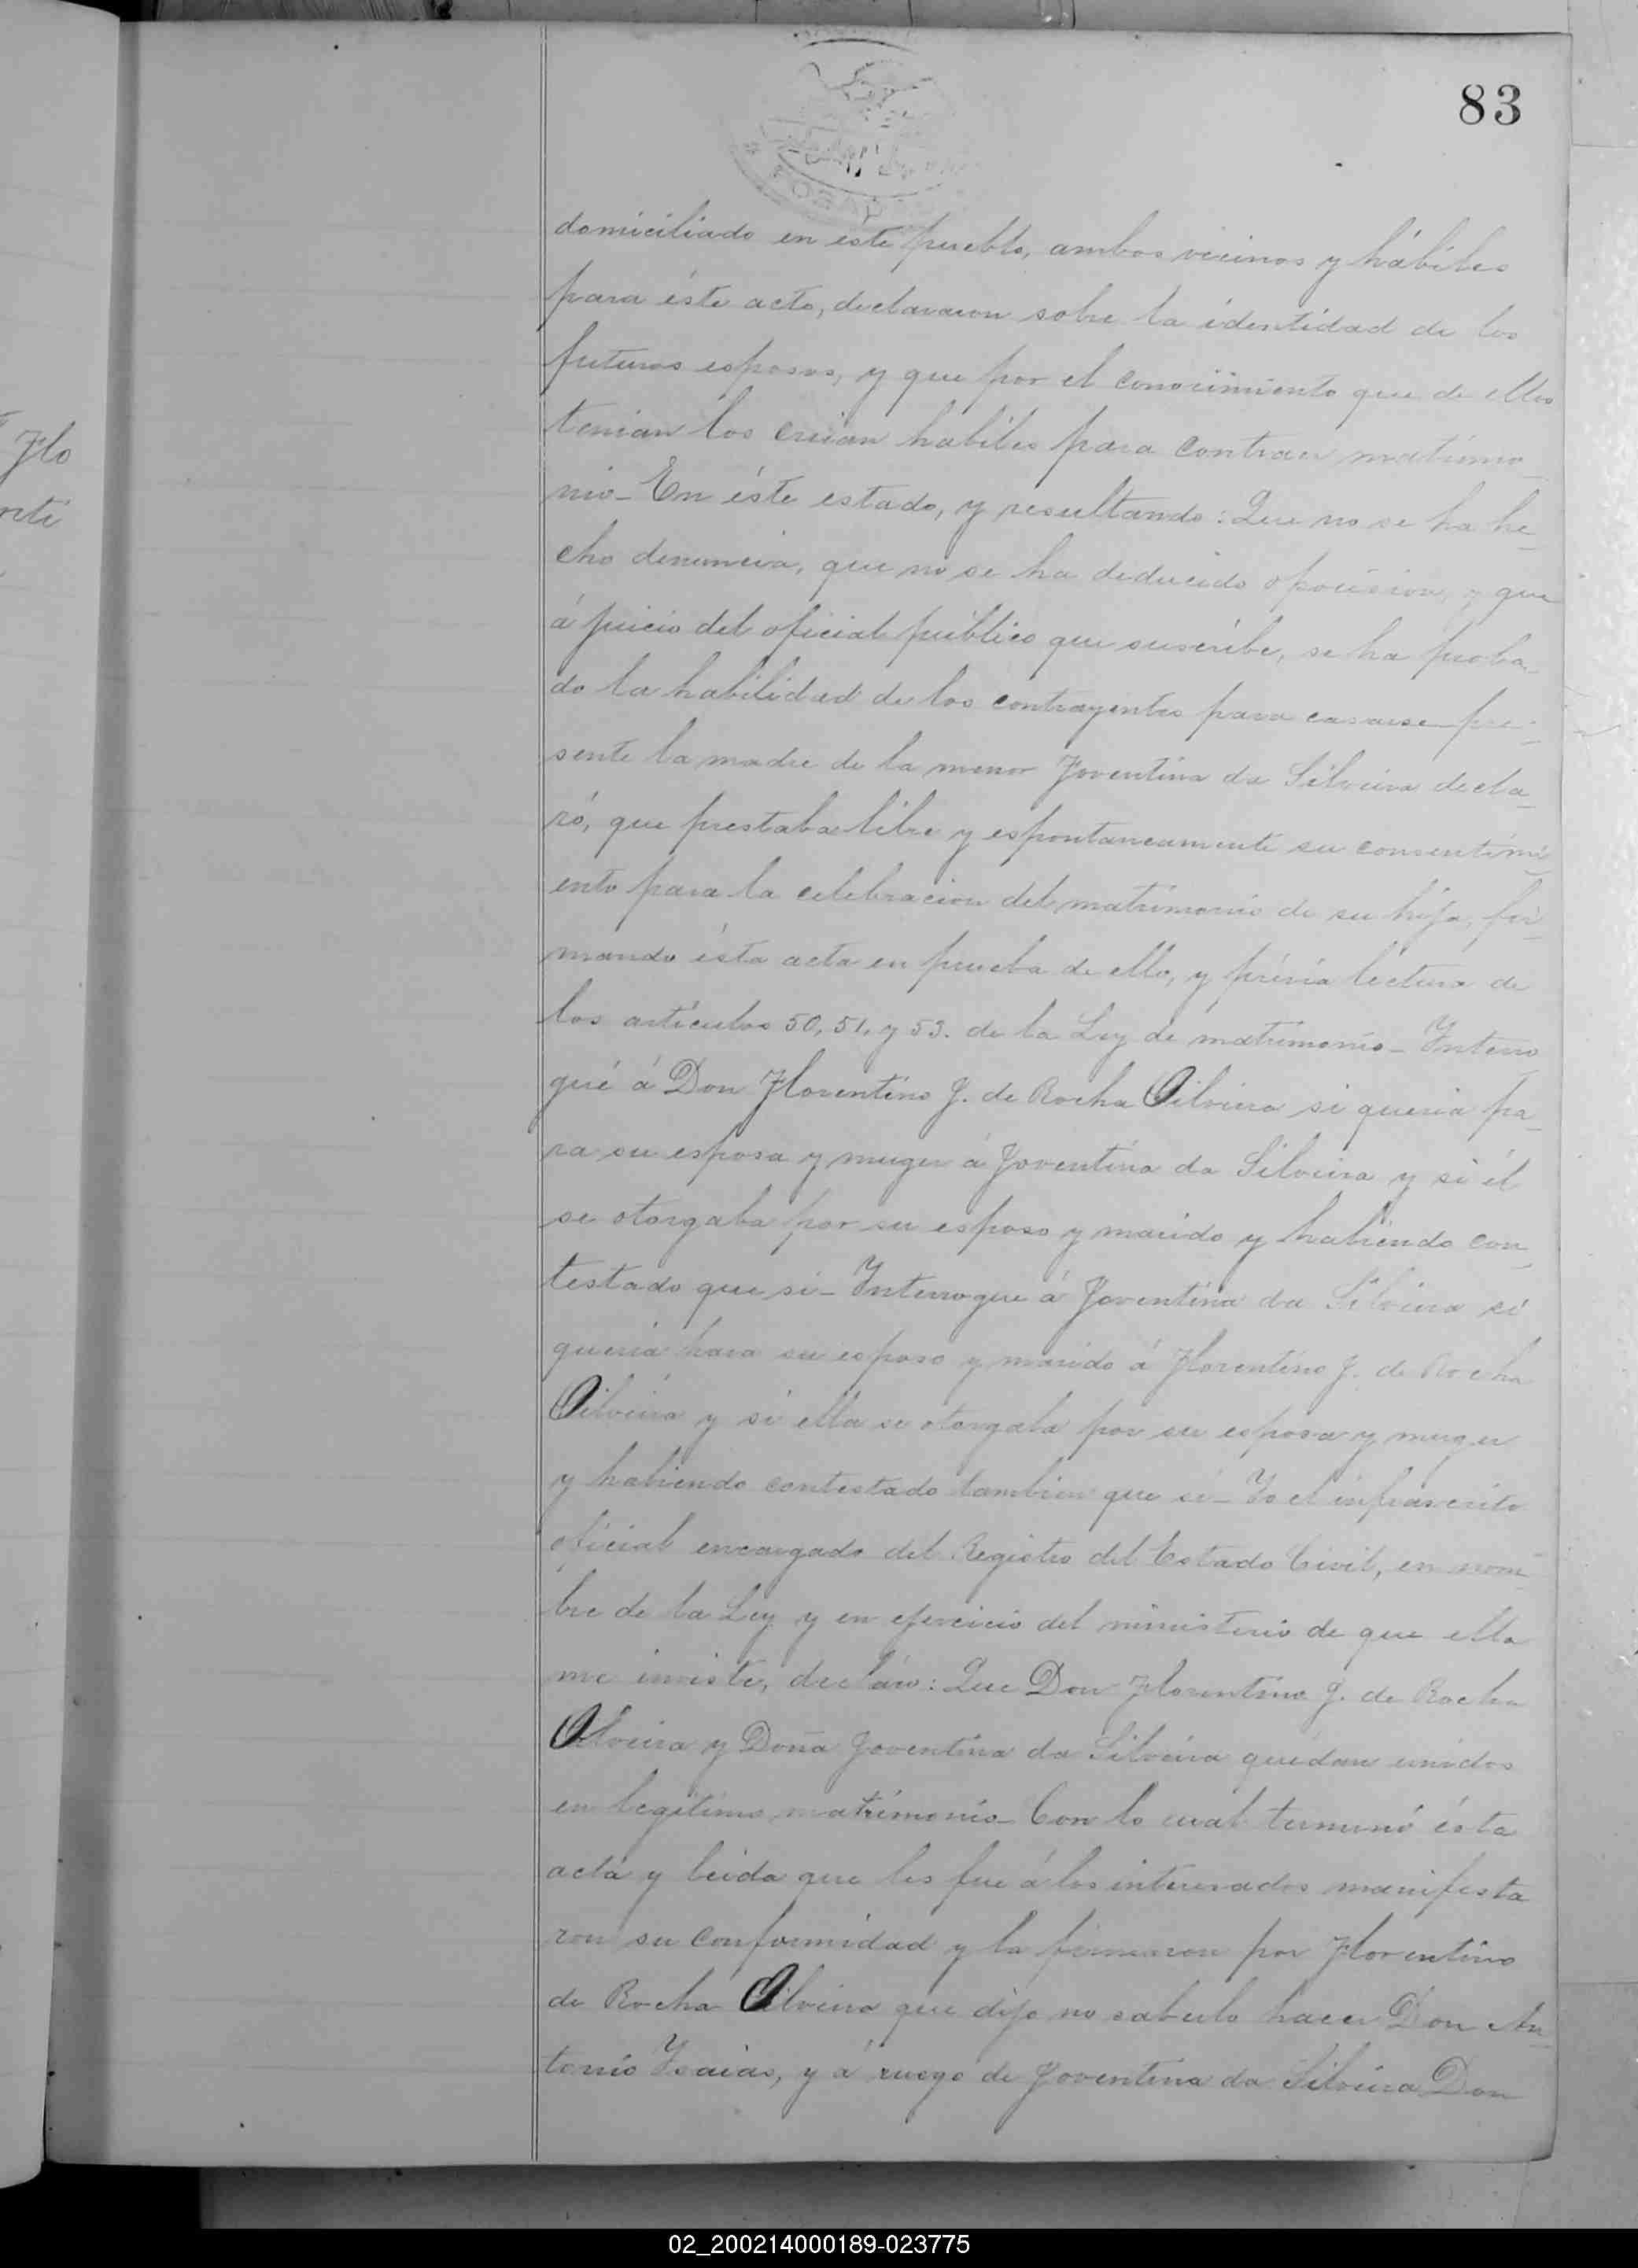 83
Flo
domiciliado en este pueblo, ambos vicinos y hábiles
para éste acto, declararon sobre la identidad de los
futuros esposos, y que por el conocimiento que de ellos
tenian los creian habiles para contraer matrimo_
nio_ En éste estado, y resultando: Que no se ha he_
cho denuncia, que no se ha deducido oposicion, y que
á juicio del oficial público que suscribe, se ha proba_
do la habilidad de los contrayentes para casarse pre_
sente la madre de la menor Joventina da Silveira decla_
ró, que prestaba libre y espontaneamente su consentimi_
ento para la celebracion del matrimonio de su hija, fir_
mando ésta acta en prueba de ello, y prévia léctura de
los artículos 50, 51, y 53. de la Ley de matrimonio_ Interro_
gué á Don Florentino J. de Rocha Oilveira si queria pa_
ra su esposa y muger á Joventina da Silveira y si él
se otorgaba por su esposo y marido y habiendo con_
testado que si_ Interrogue á Joventina da Silveira si
queria para su esposo y marido á Florentino J. de Rocha
Oilveira y si ella se otorgaba por su esposa y muger
y habiendo contestado tambien que si_ Yo el infrascrito
oficial encargado del Registro del Estado Civil, en nom_
bre de la Ley y en ejercicio del ministerio de que ella
me inviste, declaro: Que Don Florentino J. de Rocha
Oilveira y Doña Joventina da Silveira quedan unidos
en legítimo matrimonio_ Con lo cual terminó ésta
acta y leida que les fue á los interesados manifesta
ron su conformidad y la firmaron por Florentino
de Rocha Oilveira que dijo no saberlo hacer Don An_
tonio Isaias, y á ruego de Joventina da Silveira Don
02_200214000189-023775